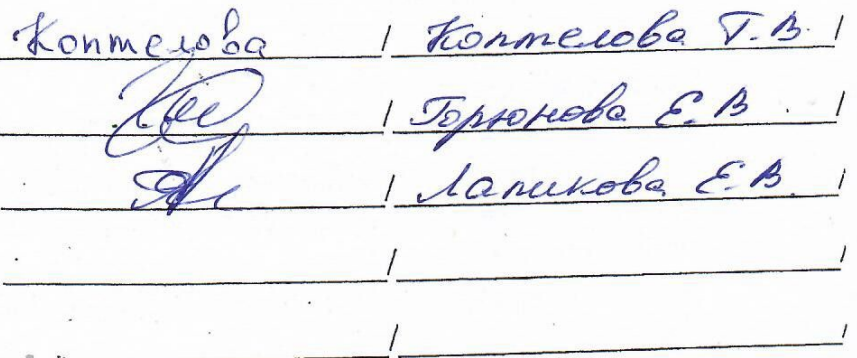 Коптелова / Коптелова Т.В. /
/ Горюнова Е.В. /
/ Лапикова Е.В. /
/ /
/ /